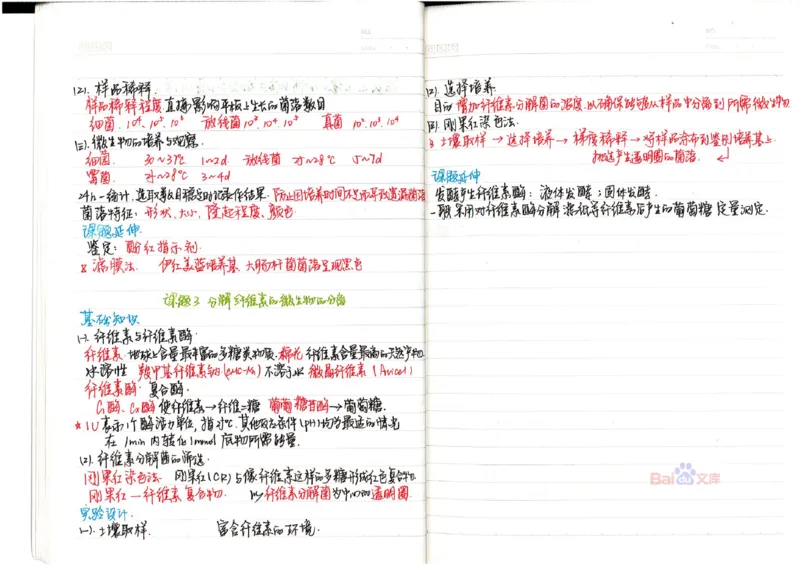 (2). 样品稀释
样品稀释程度直接影响平板上生长的菌落数目
细菌. 10⁴. 10⁵. 10⁶ 放线菌 10³. 10⁴. 10⁵ 真菌 10². 10³. 10⁴
(三). 微生物的培养与观察.
细菌. 30~37℃ 1~2d 放线菌 25~28℃ 5~7d
霉菌 25~28℃ 3~4d
24h一统计. 选取数目稳定时记录作结果. 防止因培养时间不足而导致遗漏菌落
菌落特征: 形状. 大小. 隆起程度. 颜色
课题延伸
鉴定: 酚红指示剂.
滤膜法. 伊红美蓝培养基. 大肠杆菌菌落呈现黑色
课题3 分解纤维素的微生物的分离
基础知识
(一). 纤维素与纤维素酶.
纤维素. 地球上含量最丰富的多糖类物质. 棉花 纤维素含量最高的天然产物.
水溶性 羧甲基纤维素钠(CMC-Na) 不溶于水 微晶纤维素(Avicel)
纤维素酶. 复合酶.
C₁酶. Cx酶 使纤维素→纤维二糖 葡萄糖苷酶→葡萄糖.
* 1U表示1个酶活力单位, 指 ℃. 其他反应条件(pH)均为最适的情况
在 1min内转化1mmol底物所需酶量.
(2). 纤维素分解菌的筛选.
刚果红染色法. 刚果红(CR)与像纤维素这样的多糖形成红色复合物.
刚果红—纤维素复合物. 以纤维素分解菌为中心的透明圈.
实验设计.
(一). 土壤取样. 富含纤维素的环境.
(2). 选择培养
目的 增加纤维素分解菌的浓度. 以确保能够从样品中分离到所需微生物.
(三). 刚果红染色法.
土壤取样→选择培养→梯度稀释→将样品涂布到鉴别培养基上.
挑选产生透明圈的菌落.
课题延伸
发酵产生纤维素酶: 液体发酵; 固体发酵.
一般采用对纤维素酶分解滤纸等纤维素后产生的葡萄糖定量测定.
Bai 文库